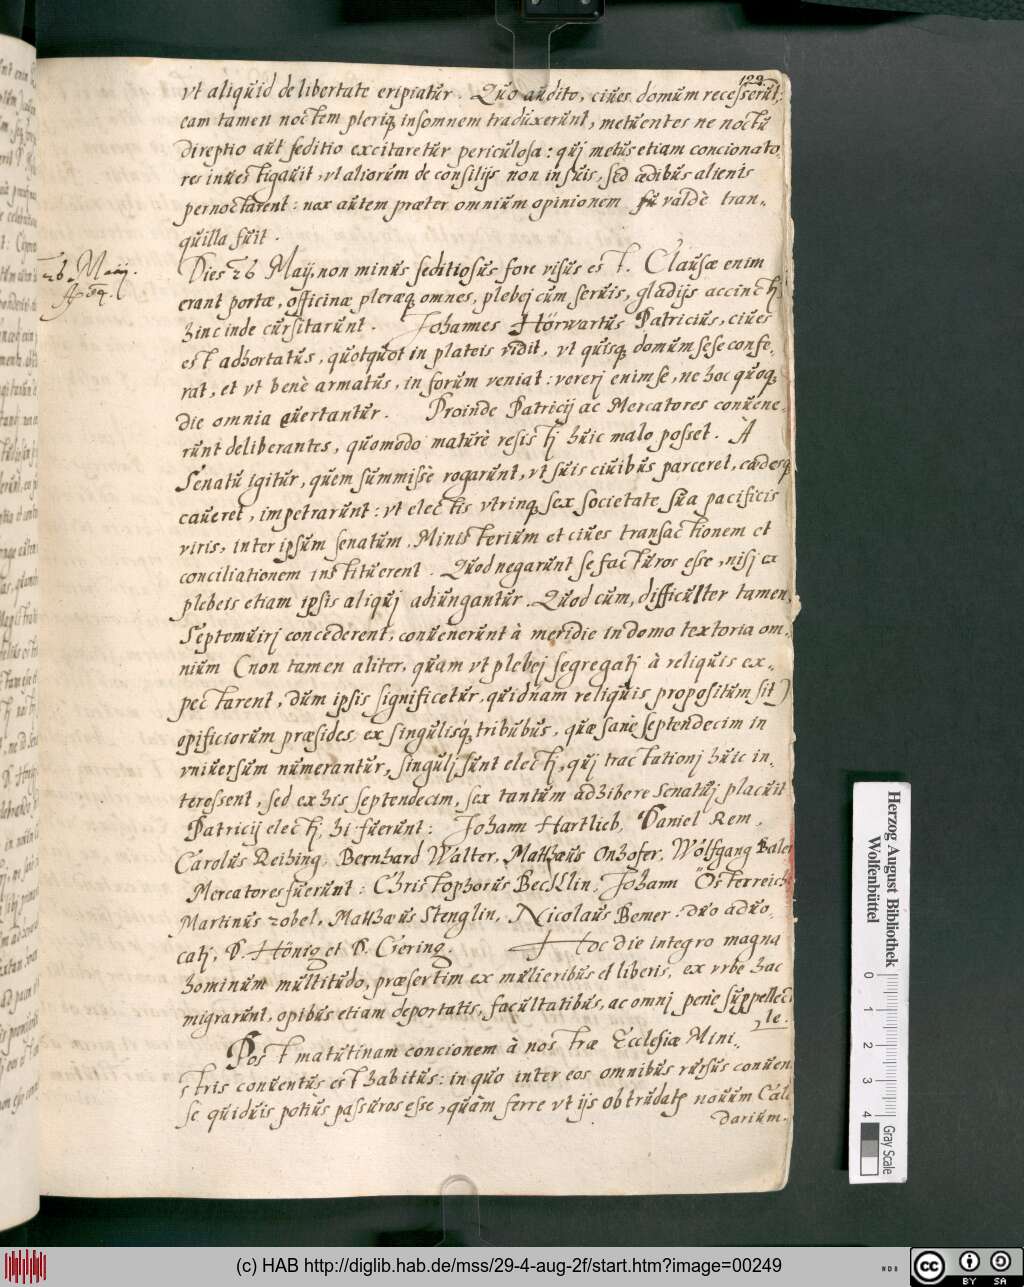 123.
vt aliquid de libertate eripiatur. Quo audito, ciues domum recesserūt,
eam tamen noctem pleriq̨ insomnem traduxerunt, metuentes ne noctu
direptio aut seditio excitaretur periculosa: qui metus etiam concionato,
res inuestigauit, vt aliorum de consilijs non in suis, sed ædibus alienis
pernoctarent: nox autem præter omnium opinionem valdè tran,,
quilla fuit.
26 Maij.
Dies 26 Maij, non minus seditiosus fore visus est. Clausæ enim
erant portæ, officinæ pleræq̨ omnes, plebej cum seruis, gladijs accincti
hinc inde cursitarunt. Johannes Hörwartus Patricius, ciues
est adhortatus, quotquot in plateis vidit, vt quisq̨ domum sese confe,,
rat, et vt benè armatus, in forum veniat: vererj enim se, ne hoc quoq̨
die omnia euertantur. Proinde Patricij ac Mercatores conuene,
runt deliberantes, quomodo maturè resistj huic malo posset. À
Senatu igitur, quem summissè rogarunt, vt suis ciuibus parceret, cædesq̨
caueret, impetrarunt: vt electis vtrinq̨ sex societate sua pacificis
viris, inter ipsum senatum, Ministerium et ciues transactionem et
conciliationem instituerent. Quod negarunt se facturos esse, nisj ex
plebeis etiam ipsis aliquj adiungantur. Quod cum, difficulter tamen,
Septemuirj concederent, conuenerunt à meridie in domo textoria om,,
nium (non tamen aliter, quam vt plebej segregatj à reliquis ex,,
pectarent, dum ipsis significetur, quidnam reliquis propositum sit)
opificiorum præsides ex singulisq̨ tribubus, quæ sanè septendecim in
vniuersum numerantur, singulj sunt electj, quj tractationj huic in,
teressent, sed ex his septendecim, sex tantum adhibere senatuj placuit
Patricij electj, hi fuerunt: Johann Hartlieb, Daniel Rem,
Carolus Reihing, Bernhard Walter, Matthæus Onhofer, Wolfgang
Mercatores fuerunt: Christophorus Bechlin, Johann Österreich
Martinus Zobel, Matthæus Stenglin, Nicolaus Bemer: duo aduo,
catj, D. Hönig et D. Gering. Hoc die integro magna
hominum multitudo, præsertim ex mulieribus et liberis, ex vrbe hac
migrarunt, opibus etiam deportatis, facultatibus, ac omnj penè suppellecti
le.
Post matutinam concionem à nostræ Ecclesiæ Mini,,
stris conuentus est habitus: in quo inter eos omnibus rursus conuen
se quiduis potius passuros esse, quàm ferre vt ijs obtrudatʳ nouum Cal
darium.
Herzog August Bibliothek
Wolfenbüttel
0 1 2 3 4
Gray Scale
(c) HAB http://diglib.hab.de/mss/29-4-aug-2f/start.htm?image=00249
WDB
cc BY SA